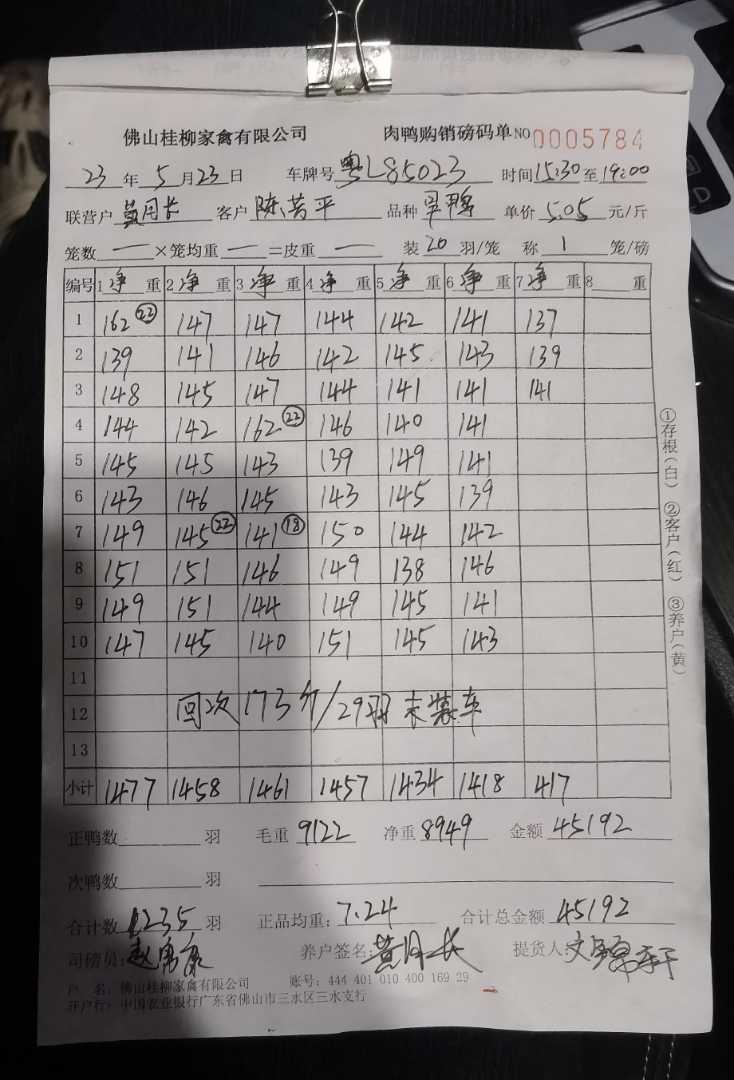 佛山桂柳家禽有限公司 肉鸭购销磅码单 NO 0005784
23年5月23日 车牌号 粤L85023 时间15:30至19:00
联营户 黄月长 客户 陈芳平 品种 旱鸭 单价 5.05 元/斤
笼数 一 ×笼均重 一 =皮重 一 装 20 羽/笼 称 1 笼/磅
编号 1净重 2净重 3净重 4净重 5净重 6净重 7净重 8 重
1 162㉒ 147 147 144 142 141 137
2 139 141 146 142 145 143 139
3 148 145 147 144 141 141 141
4 144 142 162㉒ 146 140 141
5 145 145 143 139 149 141
6 143 146 145 143 145 139
7 149 145㉒ 141⑱ 150 144 142
8 151 151 146 149 138 146
9 149 151 144 149 145 141
10 147 145 140 151 145 143
11
12 回次173斤/29羽未装车
13
小计 1477 1458 1461 1457 1434 1418 417
正鸭数 羽 毛重 9122 净重 8949 金额 45192
次鸭数 羽
合计数 1235 羽 正品均重: 7.24 合计总金额 45192
司磅员: 养户签名: 黄月长 提货人:
户 名: 佛山桂柳家禽有限公司 账号: 444 401 010 400 169 29
开户行: 中国农业银行广东省佛山市三水区三水支行
①存根(白) ②客户(红) ③养户(黄)